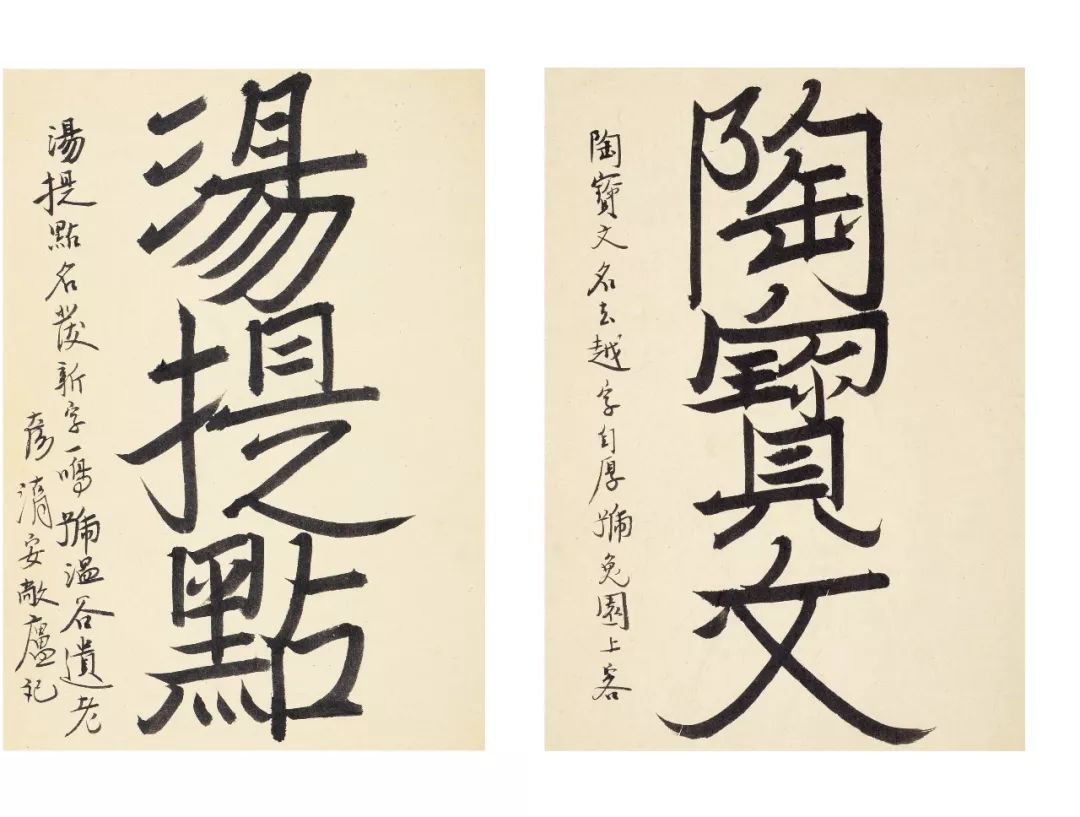 陶寶文
陶寶文名去越字自厚號兔園上客
湯提點
湯提點名發新字一鳴號溫谷遺老
彥清安敞廬記